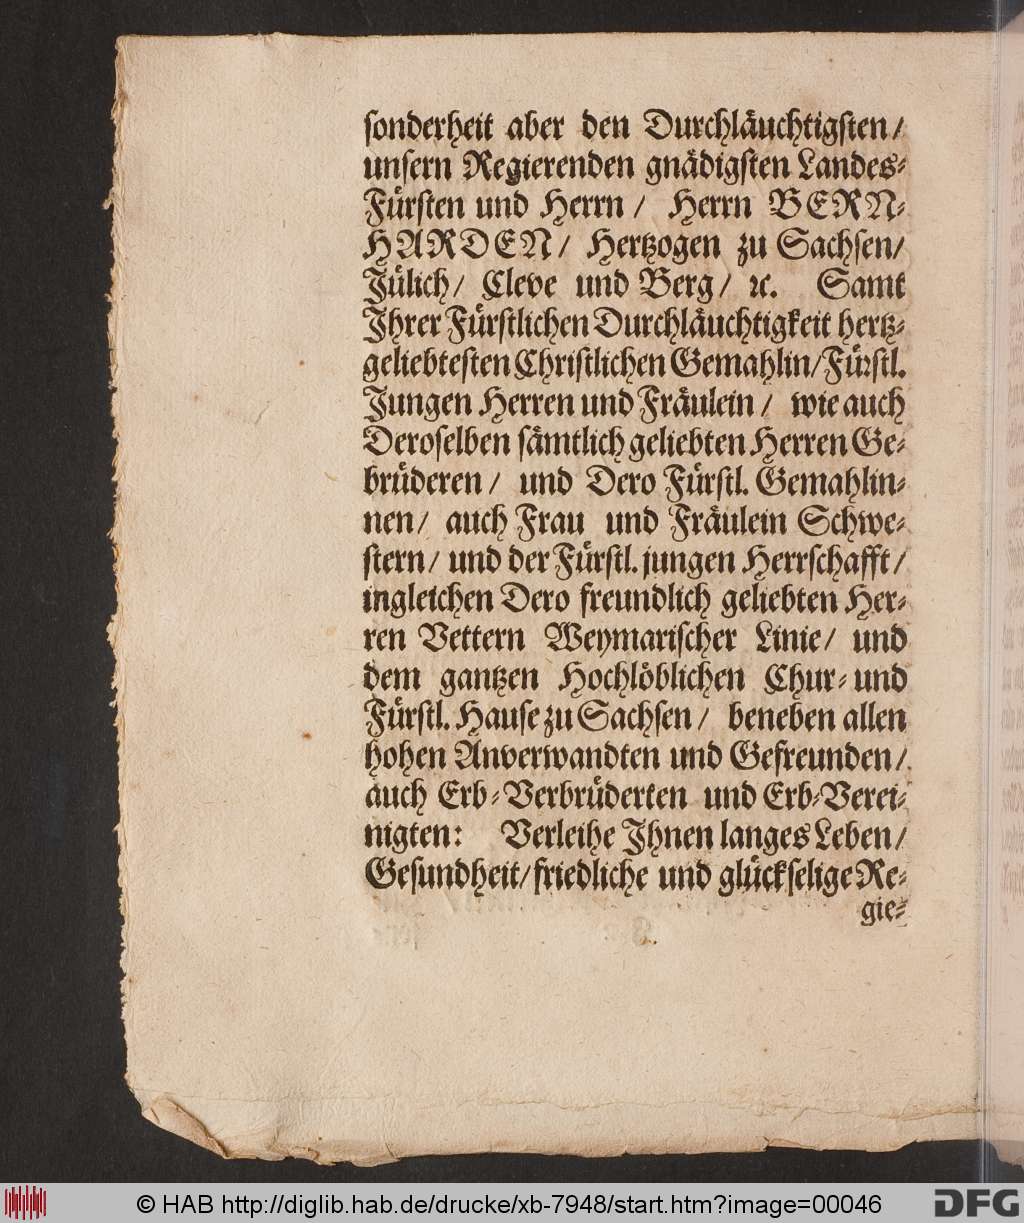 sonderheit aber den Durchläuchtigsten/
unsern Regierenden gnädigsten Landes-
Fürsten und Herrn/ Herrn BERN-
HARDEN/ Hertzogen zu Sachsen/
Jülich/ Cleve und Berg/ ꝛc. Samt
Ihrer Fürstlichen Durchläuchtigkeit hertz-
geliebtesten Christlichen Gemahlin/Fürstl.
Jungen Herren und Fräulein/ wie auch
Deroselben sämtlich geliebten Herren Ge-
brüderen/ und Dero Fürstl. Gemahlin-
nen/ auch Frau und Fräulein Schwe-
stern/ und der Fürstl. jungen Herrschafft/
ingleichen Dero freundlich geliebten Her-
ren Vettern Weymarischer Linie/ und
dem gantzen Hochlöblichen Chur- und
Fürstl. Hause zu Sachsen/ beneben allen
hohen Anverwandten und Gefreunden/
auch Erb-Verbrüderten und Erb-Verei-
nigten: Verleihe Ihnen langes Leben/
Gesundheit/friedliche und glückselige Re-
gie-
© HAB http://diglib.hab.de/drucke/xb-7948/start.htm?image=00046
DFG